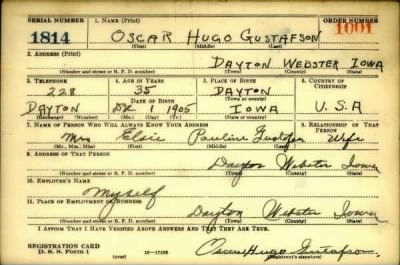 SERIAL NUMBER 1. NAME (Print) ORDER NUMBER
1814 OSCAR HUGO GUSTAFSON 1001
(First) (Middle) (Last)
2. ADDRESS (Print)
DAYTON WEBSTER IOWA
(Number and street or R. F. D. number) (Town) (County) (State)
3. TELEPHONE 4. AGE IN YEARS 5. PLACE OF BIRTH 6. COUNTRY OF CITIZENSHIP
228 35 DAYTON
DATE OF BIRTH (Town or county)
DAYTON DEC 1 1905 IOWA U.S.A
(Exchange) (Number) (Mo.) (Day) (Yr.) (State or country)
7. NAME OF PERSON WHO WILL ALWAYS KNOW YOUR ADDRESS 8. RELATIONSHIP OF THAT PERSON
Mrs Elsie Pauline Gustafson Wife
(Mr., Mrs., Miss) (First) (Middle) (Last)
9. ADDRESS OF THAT PERSON
Dayton Webster Iowa
(Number and street or R. F. D. number) (Town) (County) (State)
10. EMPLOYER'S NAME
Myself
11. PLACE OF EMPLOYMENT OR BUSINESS
Dayton Webster Iowa
(Number and street or R. F. D. number) (Town) (County) (State)
I AFFIRM THAT I HAVE VERIFIED ABOVE ANSWERS AND THAT THEY ARE TRUE.
REGISTRATION CARD
D. S. S. Form 1 (over) Oscar Hugo Gustafson
(Registrant's signature)